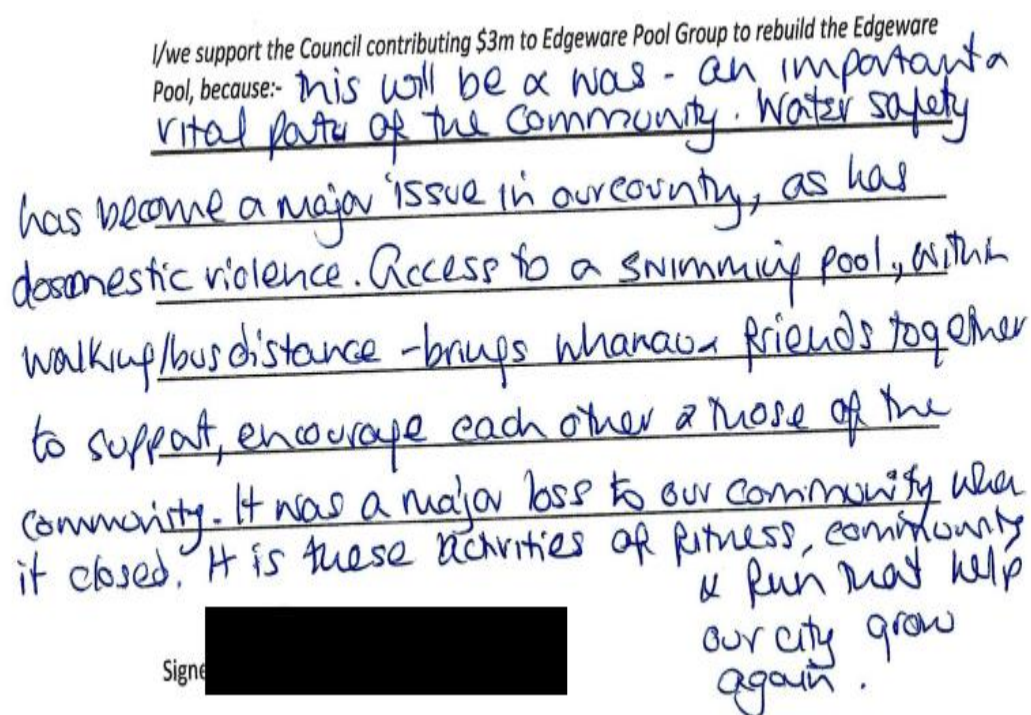 I/we support the Council contributing $3m to Edgeware Pool Group to rebuild the Edgeware
Pool, because:- this will be & was - an important &
vital part of the community. Water safety
has become a major issue in our country, as has
domestic violence. Access to a swimming pool, within
walking/bus distance - brings whanau & friends together
to support, encourage each other & those of the
community. It was a major loss to our community when
it closed. It is these activities of fitness, community
& fun that help
our city grow
again.
Signe